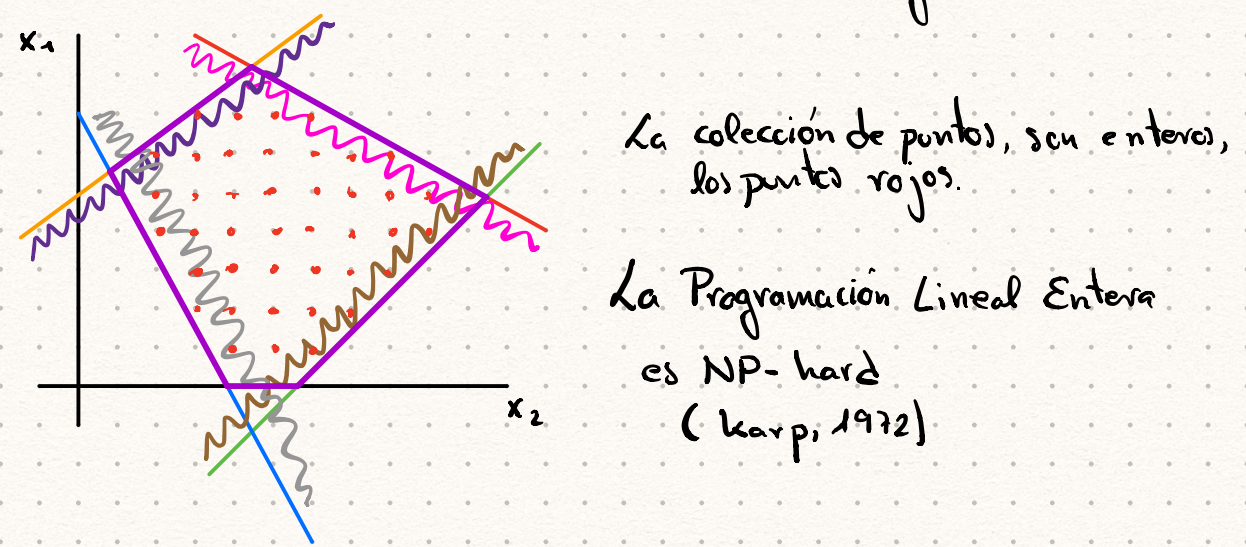 x₁
x₂
La colección de puntos, son enteros,
los puntos rojos.
La Programación Lineal Entera
es NP-hard
(Karp, 1972)